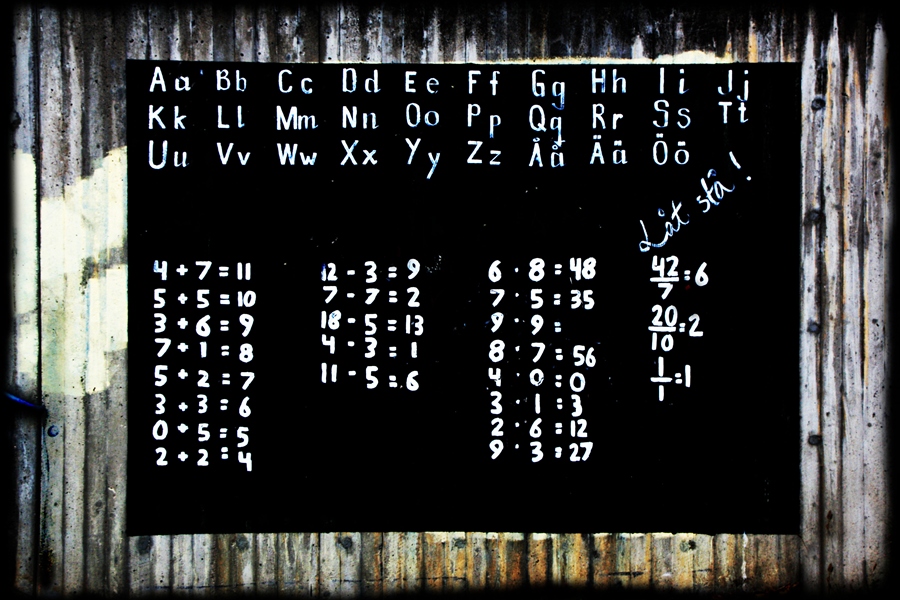 Aa Bb Cc Dd Ee Ff Gg Hh Ii Jj
Kk Ll Mm Nn Oo Pp Qq Rr Ss Tt
Uu Vv Ww Xx Yy Zz Åå Ää Öö
Låt stå!
4 + 7 = 11
5 + 5 = 10
3 + 6 = 9
7 + 1 = 8
5 + 2 = 7
3 + 3 = 6
0 + 5 = 5
2 + 2 = 4
12 - 3 = 9
7 - 7 = 2
18 - 5 = 13
4 - 3 = 1
11 - 5 = 6
6 · 8 = 48
7 · 5 = 35
9 · 9 =
8 · 7 = 56
4 · 0 = 0
3 · 1 = 3
2 · 6 = 12
9 · 3 = 27
42/7 = 6
20/10 = 2
1/1 = 1